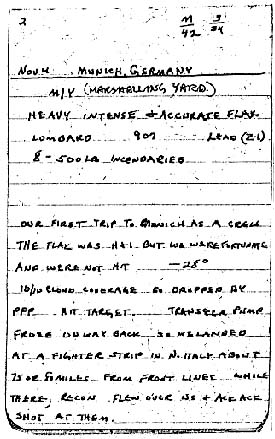 2 M/42 3/34
Nov 4 MUNICH, GERMANY
M/Y (MARSHALLING YARD)
HEAVY INTENSE + ACCURATE FLAK
LOMBARD 907 LEAD (Z1)
8 - 500 LB INCENDARIES
OUR FIRST TRIP TO MUNICH AS A CREW
THE FLAK WAS H+I BUT WE WERE FORTUNATE
AND WERE NOT HIT -25°
10/10 CLOUD COVERAGE SO DROPPED BY
PFF HIT TARGET. TRANSFER PUMP
FROZE ON WAY BACK SO WE LANDED
AT A FIGHTER STRIP IN N. ITALY ABOUT
75 OR 80 MILES FROM FRONT LINES WHILE
THERE, RECON FLEW OVER US + ACK ACK
SHOT AT THEM.